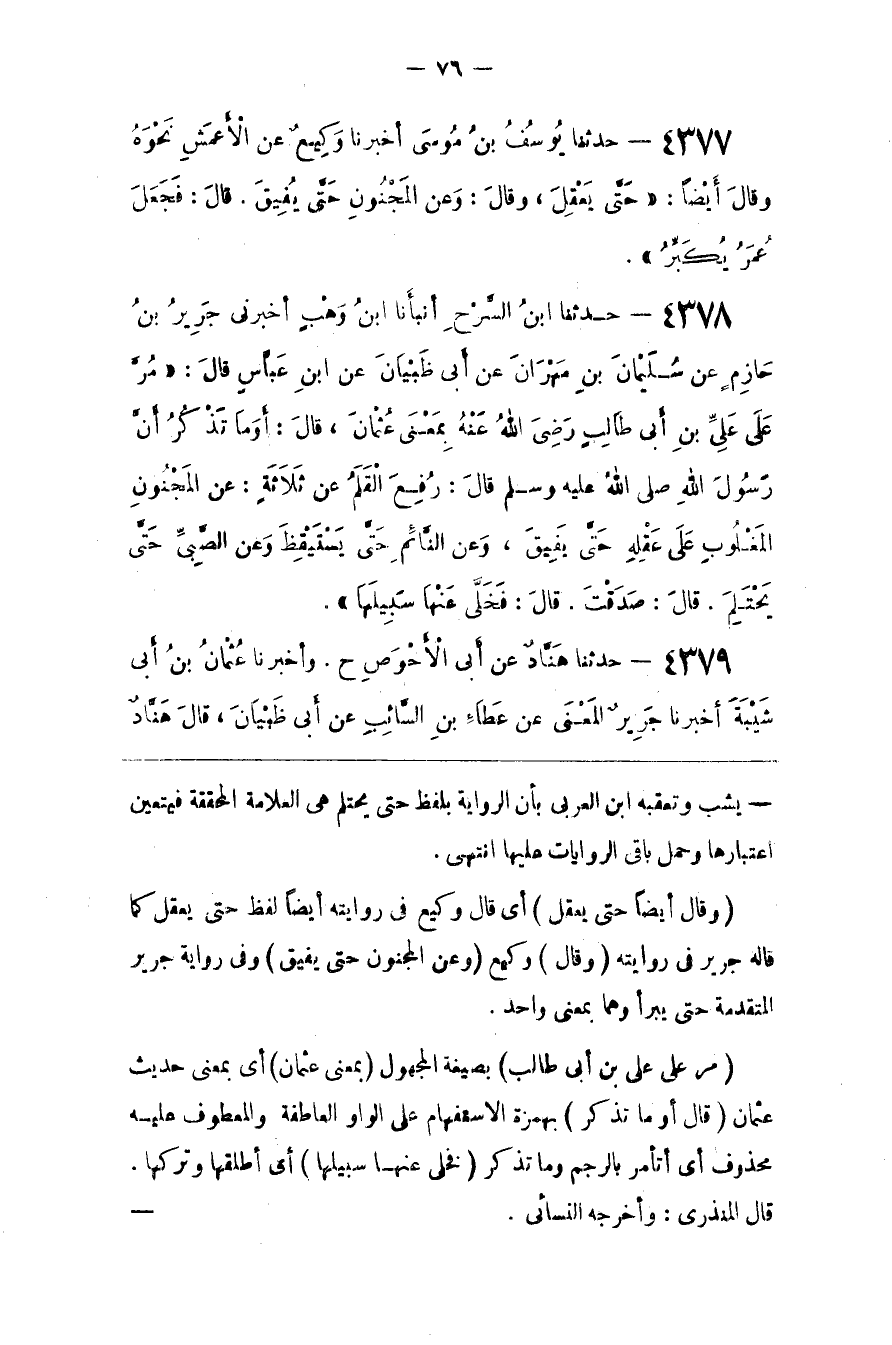 — ٧٦ —
٤٣٧٧ — حدثنا يُوسُفُ بنُ مُوسَى أخبرنا وَكِيعٌ عن الْأَعمَشِ نَحْوَهُ
وقالَ أَيْضاً : « حَتَّى يَعْقِلَ ، وقالَ : وَعن المَجْنُونِ حَتَّى يُفِيقَ . قالَ : فَجَعَلَ
عُمَرُ يُكَبِّرُ » .
٤٣٧٨ — حـدثنا ابنُ السَّرْحِ أنبأَنا ابنُ وَهْبٍ أخبرنى جَرِيرُ بنُ
حَازِمٍ عن سُـلَيْمَانَ بنِ مِهْرَانَ عن أَبى ظَبْيَانَ عن ابنِ عَبَّاسٍ قالَ : « مُرَّ
عَلَى عَلِيِّ بنِ أَبى طَالِبٍ رَضِىَ اللهُ عَنْهُ بِمَعْـنَى عُثْمَانَ ، قالَ : أَوَمَا تَذْكُرُ أَنَّ
رَسُولَ اللهِ صلى اللهُ عليه وسـلم قالَ : رُفِـعَ الْقَلَمُ عن ثَلَاثَةٍ : عن المَجْنُونِ
المَغْـلُوبِ عَلَى عَقْلِهِ حَتَّى يَفِيقَ ، وَعن النَّائِمِ حَتَّى يَسْتَيْقِظَ وَعن الصَّبِىِّ حَتَّى
يَحْتَـلِمَ . قالَ : صَدَقْتَ . قالَ : فَخَلَّى عَنْهَا سَبِيلَهَا » .
٤٣٧٩ — حدثنا هَنَّادٌ عن أَبى الْأَحْوَصِ ح . وأخبرنا عُثْمَانُ بنُ أَبى
شَيْبَةَ أخبرنا جَرِيرٌ المَعْـنَى عن عَطَاءِ بنِ السَّائِبِ عن أَبى ظَبْيَانَ ، قالَ هَنَّادٌ
— يشب وتعقبه ابن العربى بأن الرواية بلفظ حتى يحتلم هى العلامة المحققة فيتعين
اعتبارها وحمل باقى الروايات عليها انتهى .
( وقال أيضاً حتى يعقل ) أى قال وكيع فى روايته أيضاً لفظ حتى يعقل كما
قاله جرير فى روايته ( وقال ) وكيع ( وعن المجنون حتى يفيق ) وفى رواية جرير
المتقدمة حتى يبرأ وهما بمعنى واحد .
( مر على على بن أبى طالب ) بصيغة المجهول ( بمعنى عثمان ) أى بمعنى حديث
عثمان ( قال أو ما تذكر ) بهمزة الاستفهام على الواو العاطفة والمعطوف عليـه
محذوف أى أتأمر بالرجم وما تذكر ( فخلى عنهـا سبيلها ) أى أطلقها وتركها .
قال المنذرى : وأخرجه النسائى . —